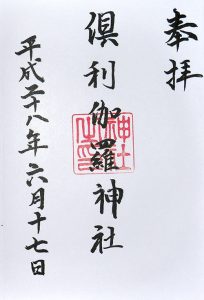 奉拝
倶利伽羅神社
平成二十八年六月十七日